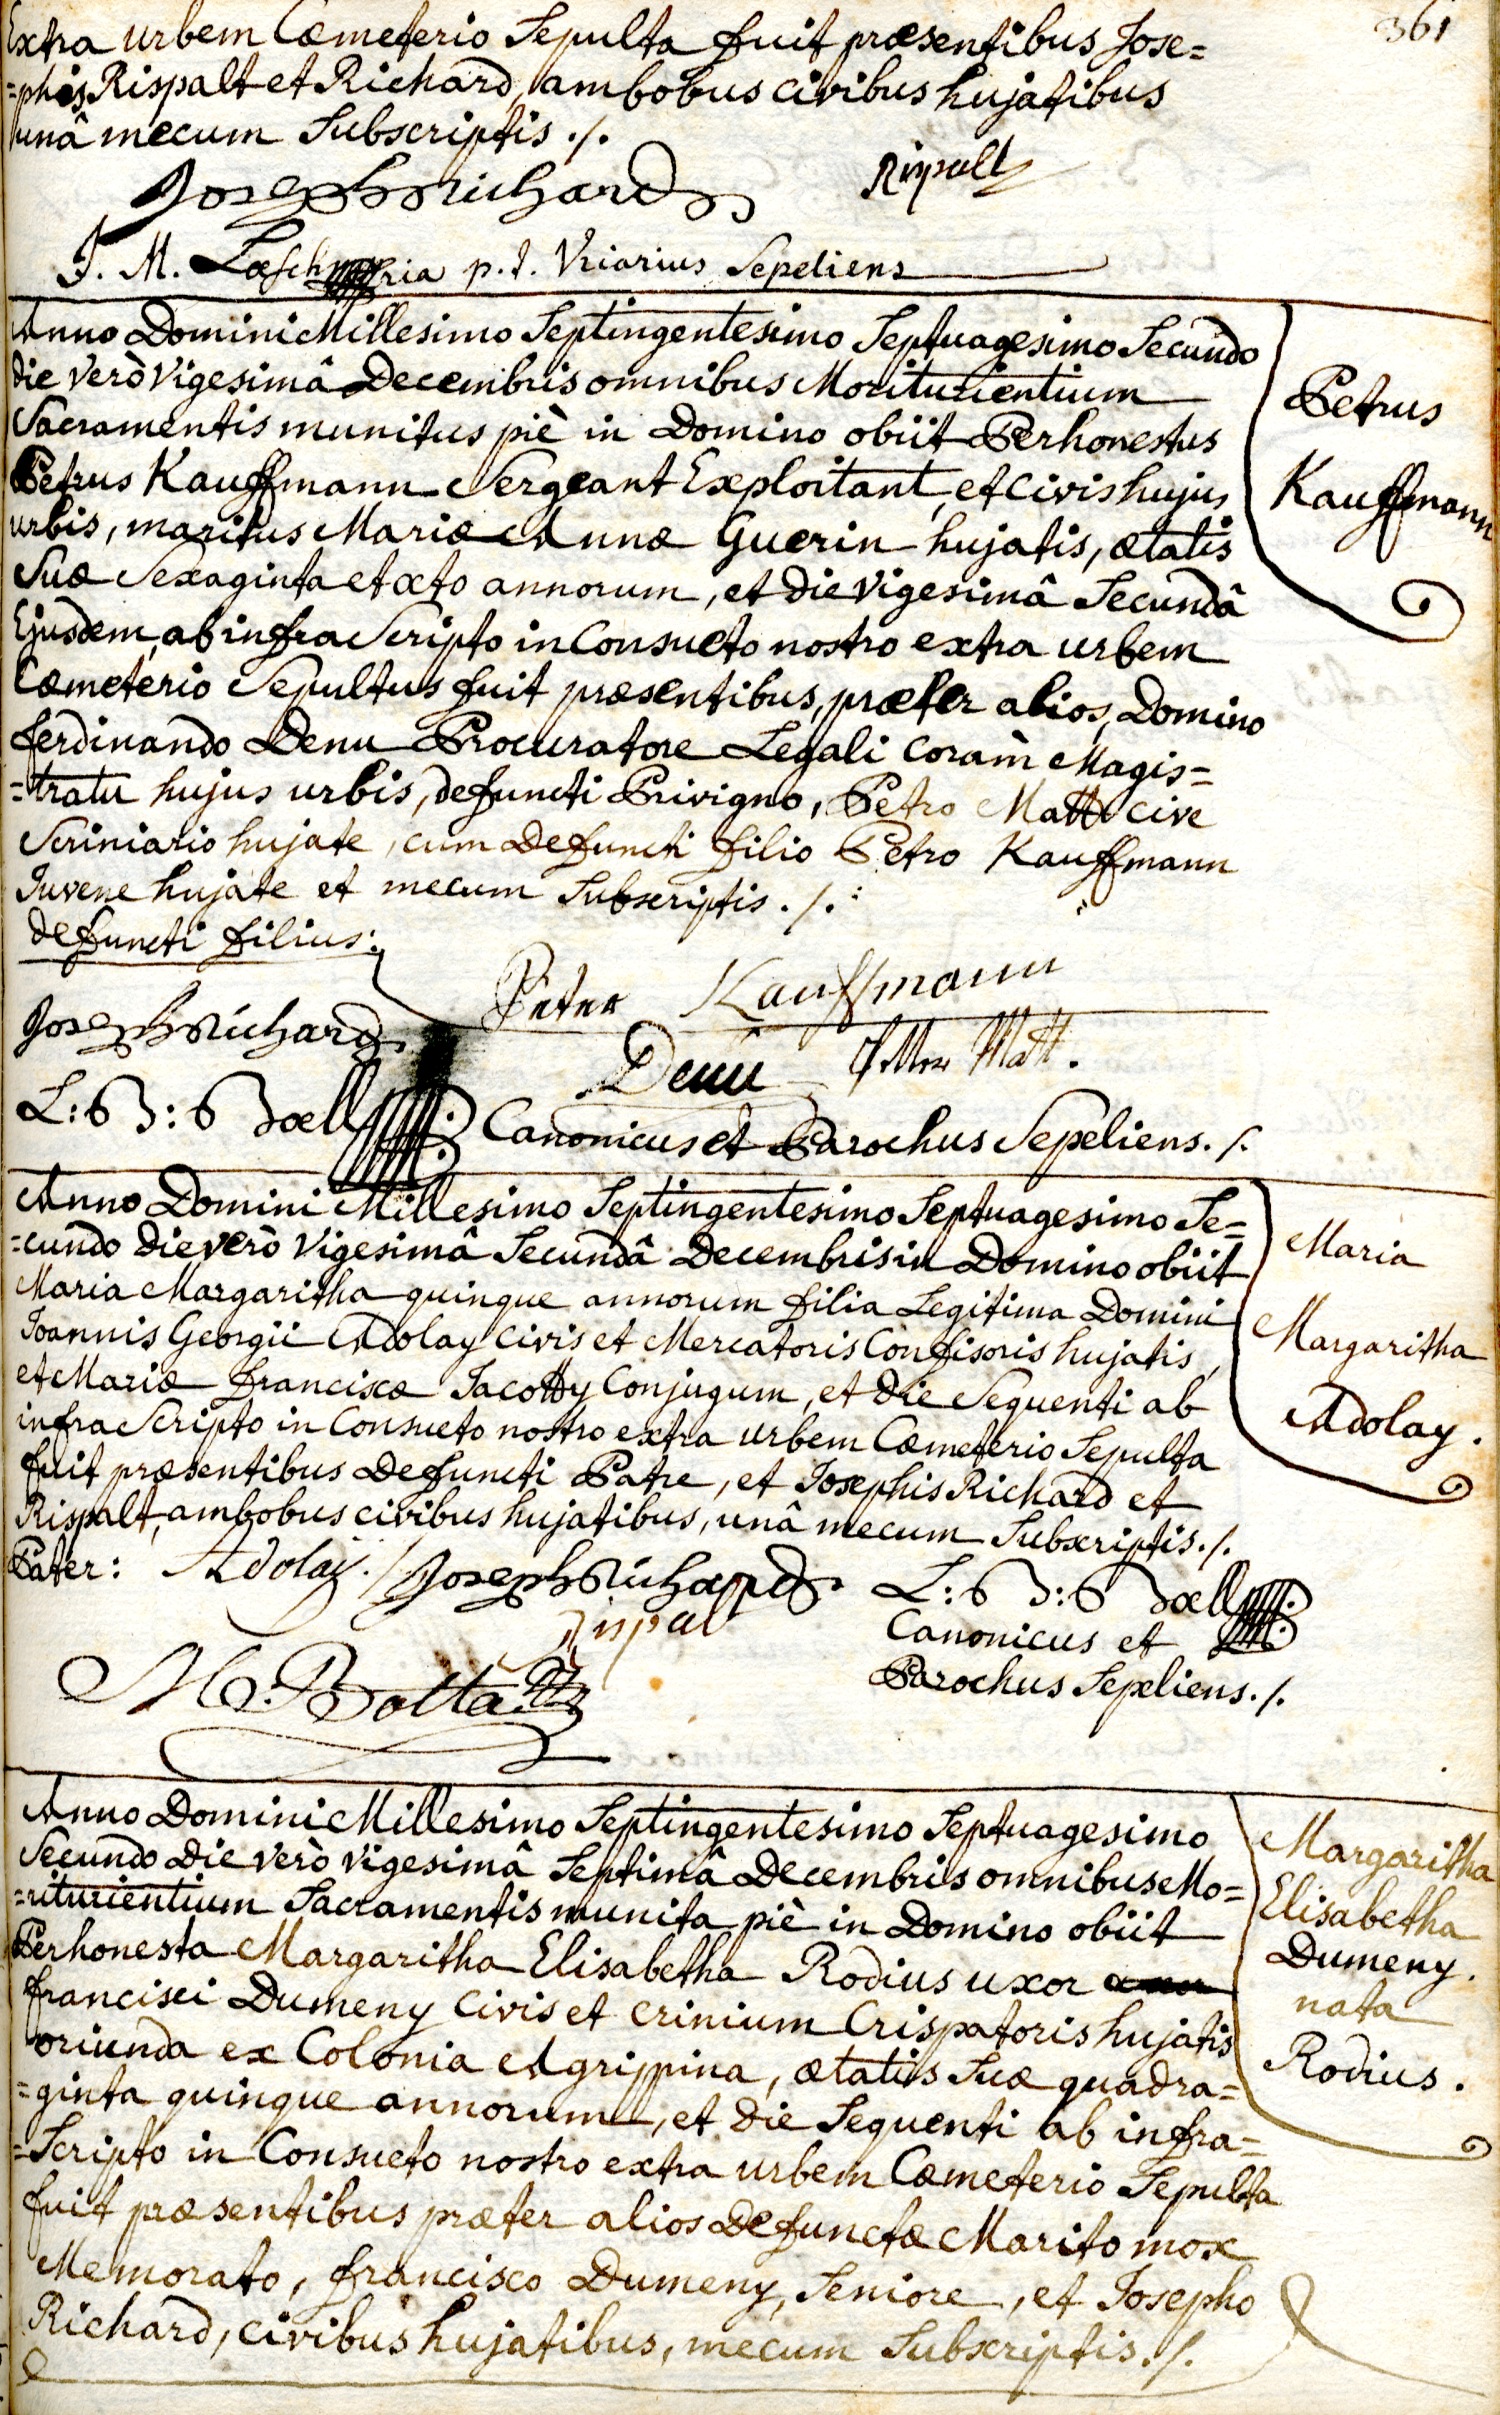 361
Extra urbem Cœmeterio Sepulta fuit præsentibus Jose=
=phis Rispalt et Richard, ambobus civibus hujatibus
unâ mecum Subscriptis ./.
Joseph Richard Rispalt
J. M. p. t. Vicarius Sepeliens
Anno Domini Millesimo Septingentesimo Septuagesimo Secundo
die verò Vigesimâ Decembris omnibus Moriturientium
Sacramentis munitus piè in Domino obiit Perhonestus
Petrus Kauffmann Sergeant Exploitant, et Civis hujus
urbis, maritus Mariæ Annæ Guerin hujatis, ætatis
Suæ Sexaginta et octo annorum, et die Vigesimâ Secundâ
Ejusdem, ab infra Scripto in Consueto nostro extra urbem
Cœmeterio Sepultus fuit præsentibus, præter alios, Domino
ferdinando Denu Procuratore Legali Coràm Magis=
=tratu hujus urbis, defuncti Privigno, Petro Matt Cive
Scriniario hujate, cum Defuncti filio Petro Kauffmann
Juvene hujate et mecum Subscriptis ./.
Petrus
Kauffmann
defuncti filius: Peter Kauffmann
Joseph Richard Denu Matt.
Canonicus et Parochus Sepeliens ./.
Anno Domini Millesimo Septingentesimo Septuagesimo Se=
=cundo die verò Vigesimâ Secundâ Decembris in Domino obiit
Maria Margaritha quinque annorum filia Legitima Domini
Joannis Georgii Adolay Civis et Mercatoris Confisoris hujatis,
et Mariæ Franciscæ Jacotty Conjugum, et die Sequenti ab
infra Scripto in Consueto nostro extra urbem Cœmeterio Sepulta
fuit præsentibus Defuncti Patre, et Josephis Richard et
Rispalt, ambobus civibus hujatibus, unâ mecum Subscriptis ./.
Maria
Margaritha
Adolay.
Pater: Adolay. Joseph Richard
Rispal
Canonicus et
Parochus Sepeliens ./.
Anno Domini Millesimo Septingentesimo Septuagesimo
Secundo die verò vigesimâ Septimâ Decembris omnibus Mo=
=riturientium Sacramentis munita piè in Domino obiit
Perhonesta Margaritha Elisabetha Rodius uxor
francisci Dumeny Civis et Crinium Crispatoris hujatis
oriunda ex Colonia Agrippina, ætatis Suæ quadra=
=ginta quinque annorum, et die Sequenti ab infra=
=Scripto in Consueto nostro extra urbem Cœmeterio Sepulta
fuit præsentibus præter alios Defunctæ Marito mox
Memorato, francisco Dumeny, Seniore, et Josepho
Richard, civibus hujatibus, mecum Subscriptis ./.
Margaritha
Elisabetha
Dumeny.
nata
Rodius.